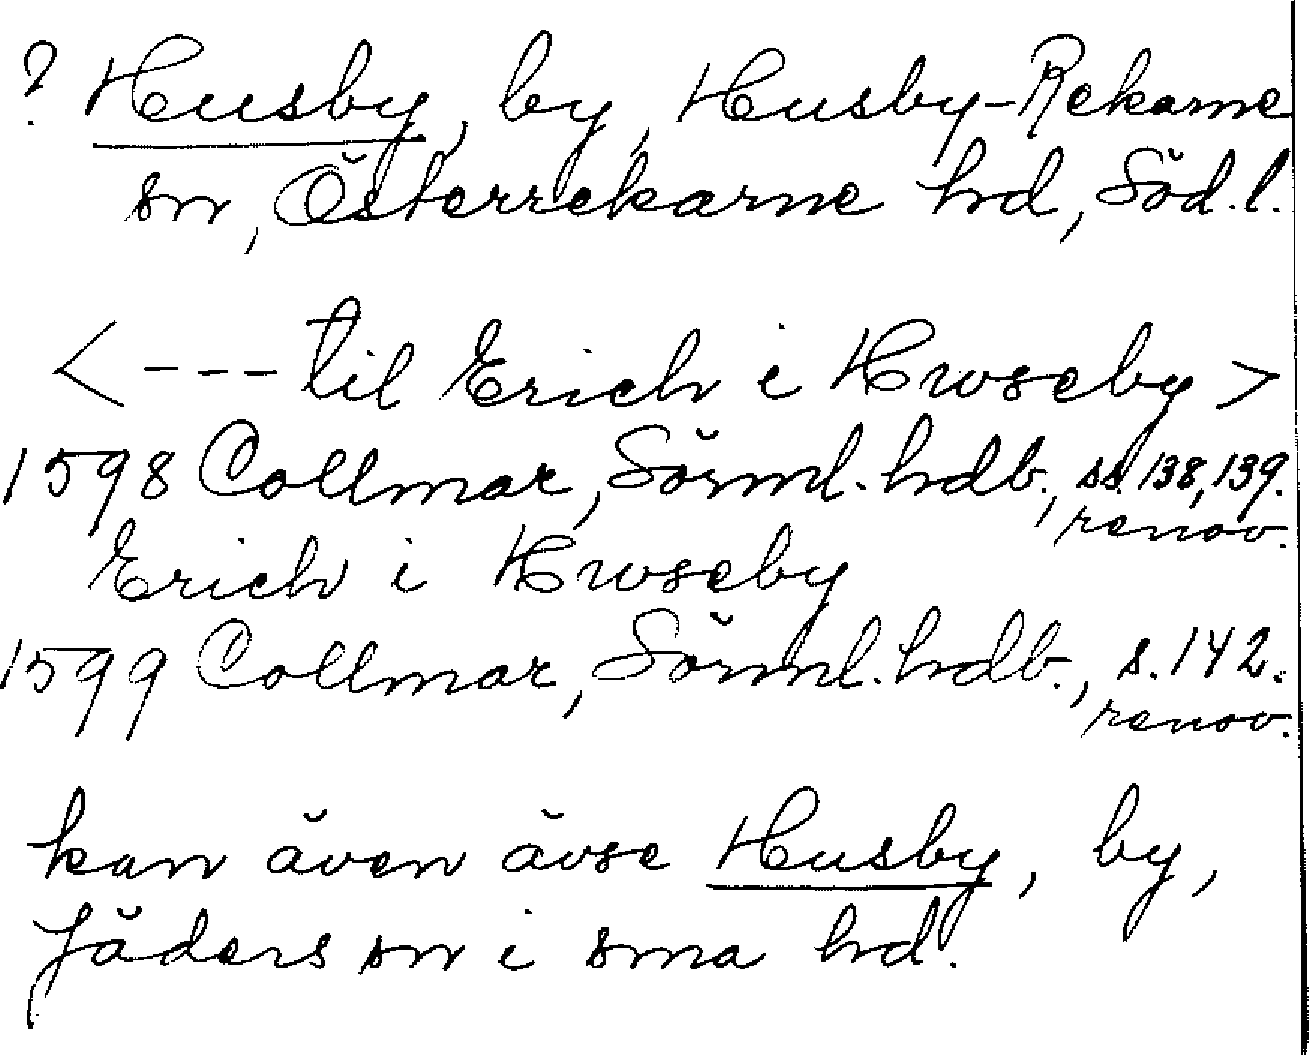 ? Husby, by, Husby-Rekarne
sn, Österrekarne hd, Söd.l.
<--- til Erich i Hwseby>
1598 Collmar, Sörml. hdb., ss. 138, 139.
renov.
Erich i Hwseby
1599 Collmar, Sörml. hdb., s. 142.
renov.
kan även avse Husby, by,
Jäders sn i sma hd.